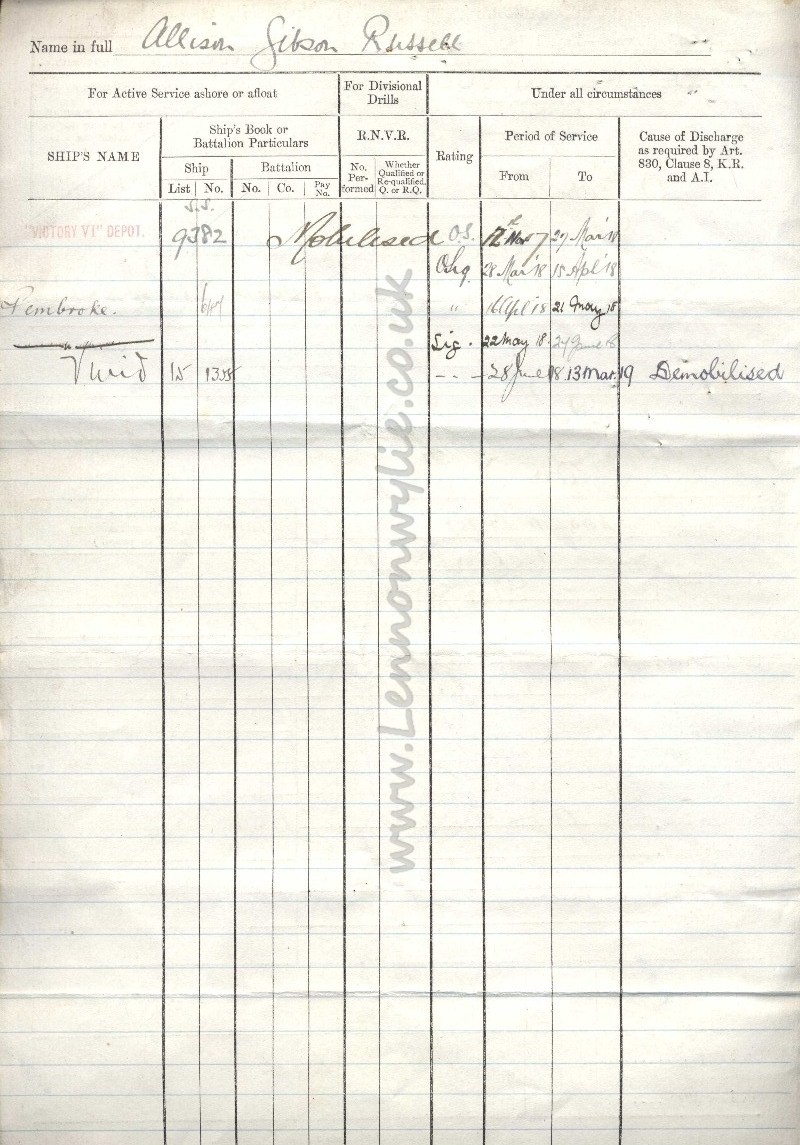 Name in full Allison Gibson Russell
For Active Service ashore or afloat
For Divisional Drills
Under all circumstances
SHIP'S NAME
Ship's Book or Battalion Particulars
R.N.V.R.
Rating
Period of Service
Cause of Discharge as required by Art. 830, Clause 8, K.R. and A.I.
Ship
Battalion
No. Per-formed
Whether Qualified or Re-qualified, Q. or R.Q.
From
To
List
No.
No.
Co.
Pay No.
S.S.
"VICTORY VI" DEPOT. 9382 Mobilised O.S. 12th Nov 7 27 Mar '18
OSig 28 Mar '18 15 Apl '18
Pembroke. " 16 Apl '18 21 May 18
Sig. 22 May 18. 27 June 18
Vivid 15 1355 - - - 28 June 18 13 Mar. 19 Demobilised
www.Lennonwylie.co.uk